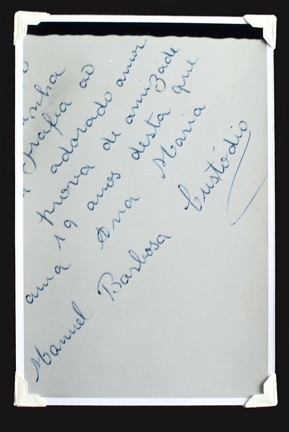 inha
grafia ao
adorado amor
prova de amizade
19 anos desta que
ama Ana Maria
Manuel Barbosa Custódio